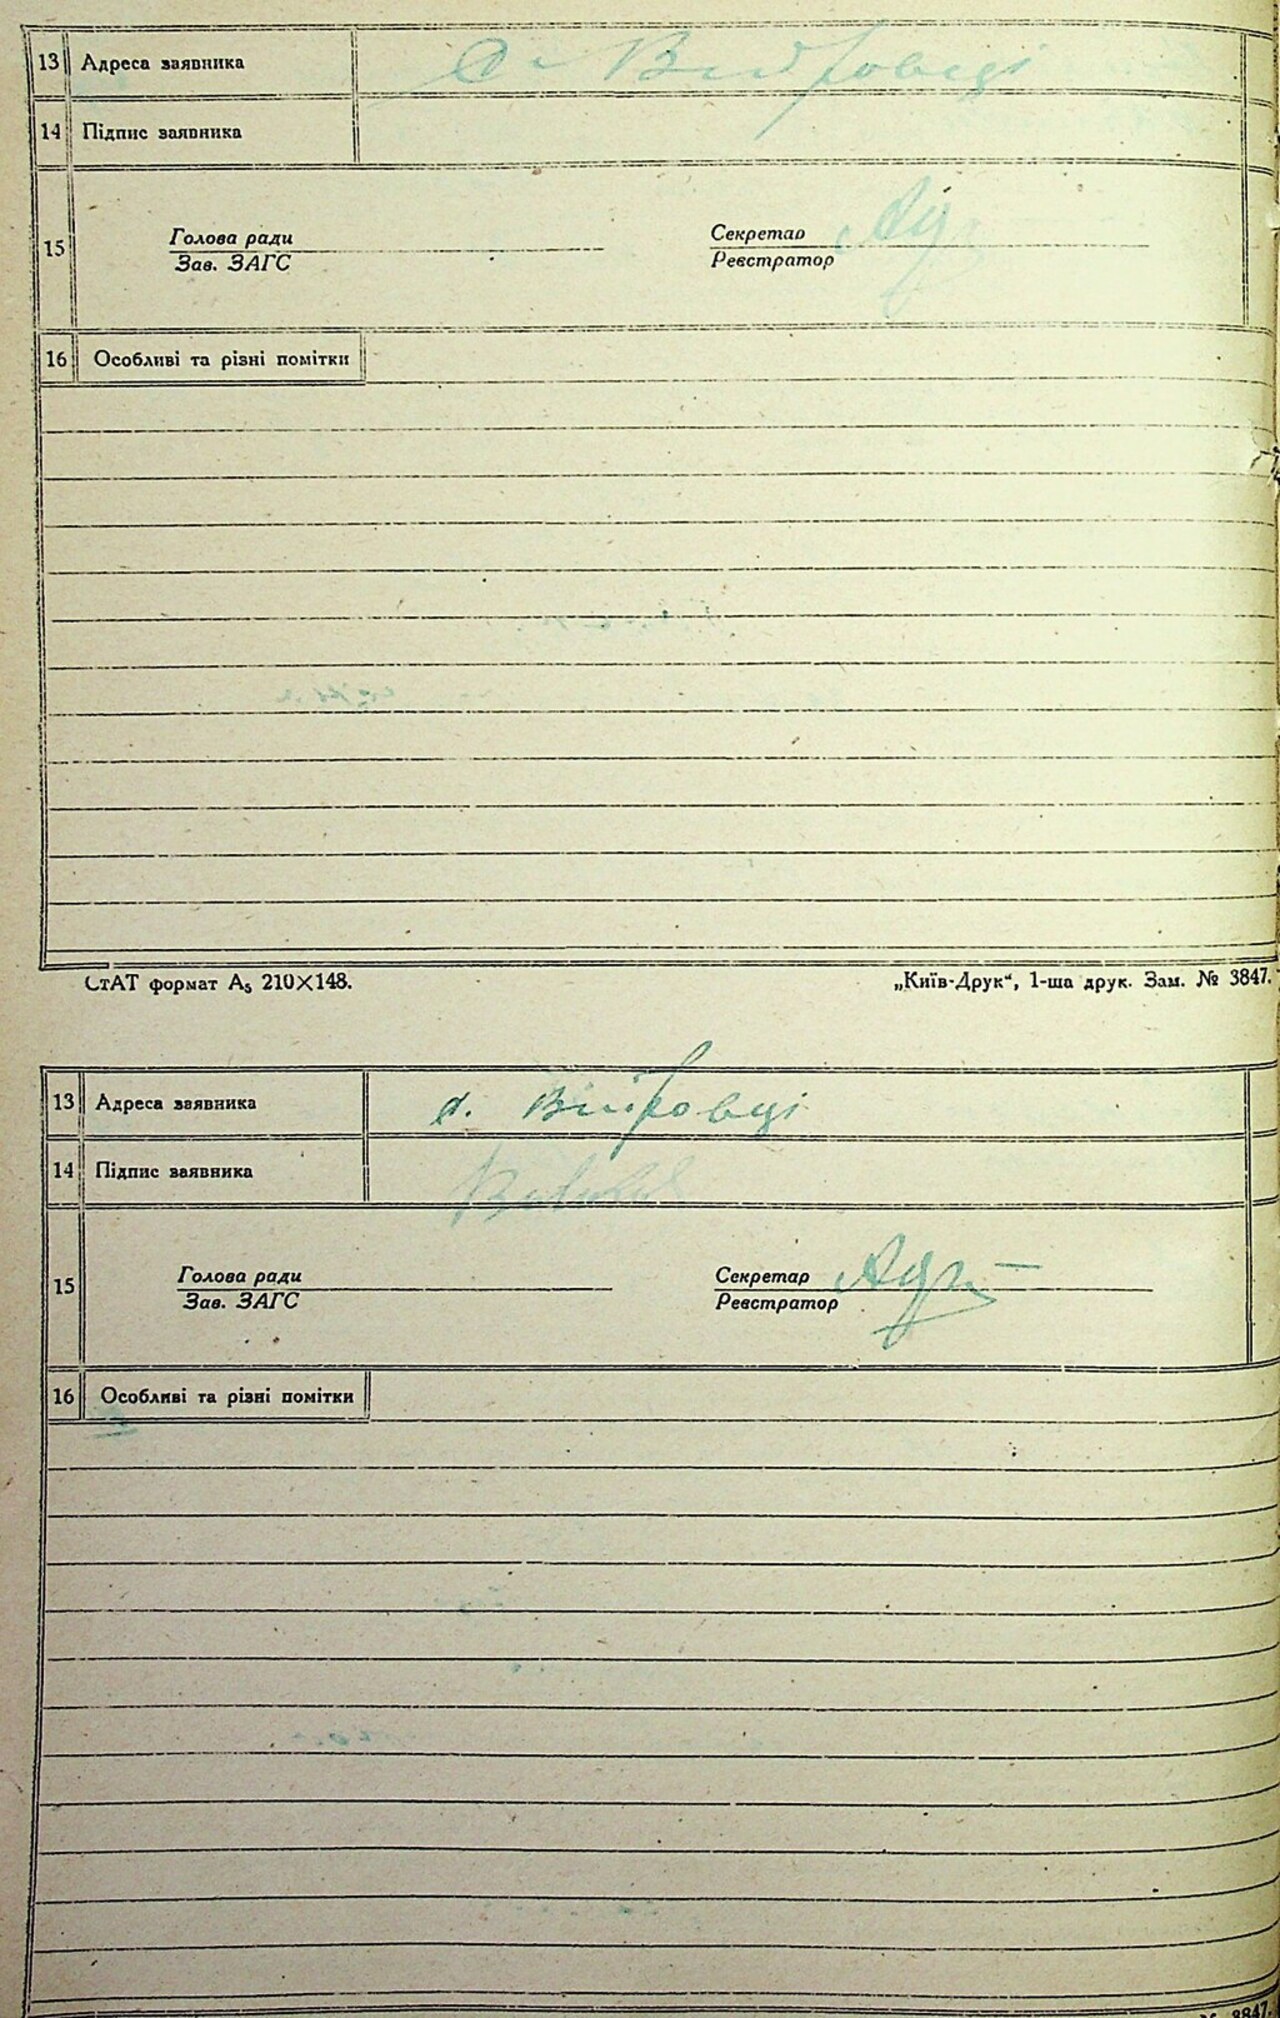 13 Адреса заявника с. Війтовці
14 Підпис заявника
15 Голова ради Секретар
Зав. ЗАГС Реєстратор
16 Особливі та різні помітки
СтАТ формат А5 210×148. „Київ-Друк“, 1-ша друк. Зам. № 3847.
13 Адреса заявника с. Війтовці
14 Підпис заявника
15 Голова ради Секретар
Зав. ЗАГС Реєстратор
16 Особливі та різні помітки
№ 3847.